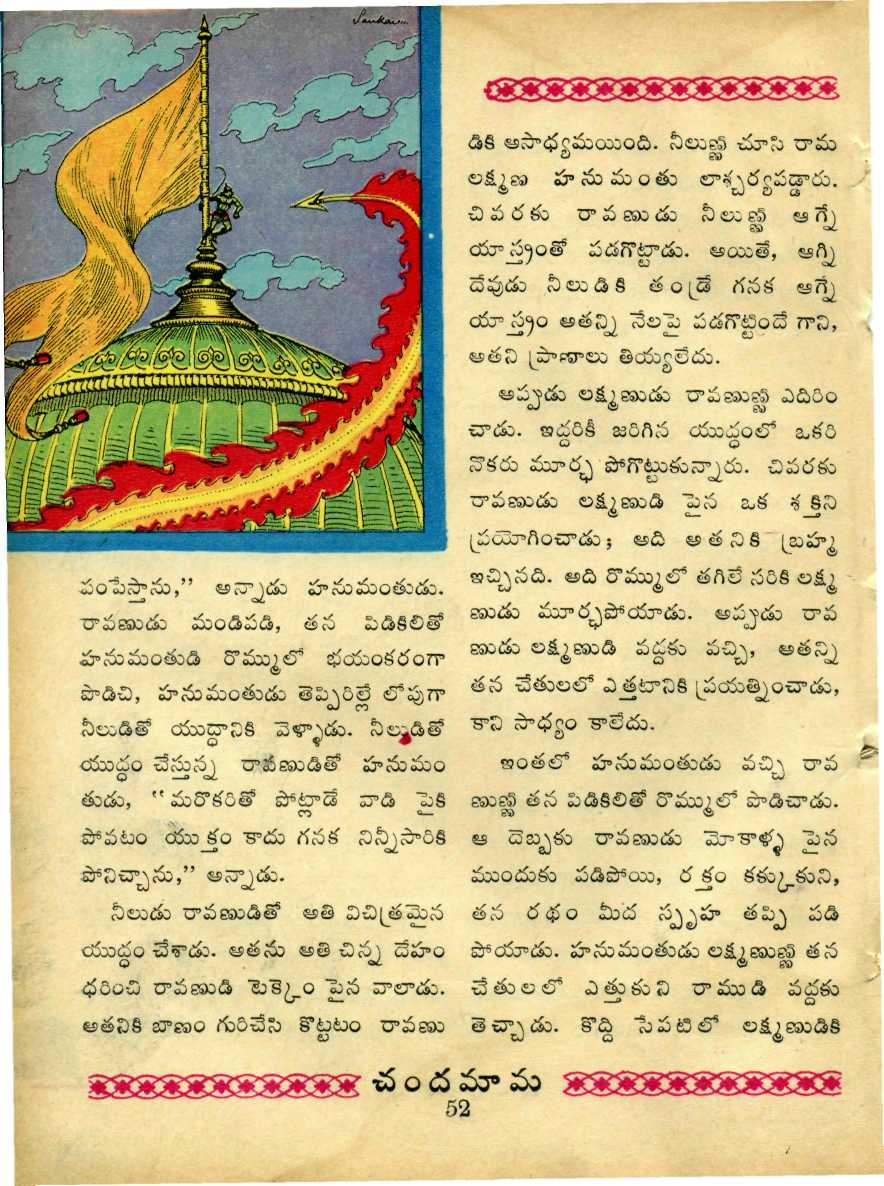 Sankar...
పంపేస్తాను,’’ అన్నాడు హనుమంతుడు.
రావణుడు మండిపడి, తన పిడికిలితో
హనుమంతుడి రొమ్ములో భయంకరంగా
పొడిచి, హనుమంతుడు తెప్పిరిల్లే లోపుగా
నీలుడితో యుద్ధానికి వెళ్ళాడు. నీలుడితో
యుద్ధం చేస్తున్న రావణుడితో హనుమం
తుడు, ‘‘మరొకరితో పోట్లాడే వాడి పైకి
పోవటం యుక్తం కాదు గనక నిన్నీసారికి
పోనిచ్చాను,’’ అన్నాడు.
నీలుడు రావణుడితో అతి విచిత్రమైన
యుద్ధం చేశాడు. అతను అతి చిన్న దేహం
ధరించి రావణుడి టెక్కెం పైన వాలాడు.
అతనికి బాణం గురిచేసి కొట్టటం రావణు
డికి అసాధ్యమయింది. నీలుణ్ణి చూసి రామ
లక్ష్మణ హనుమంతు లాశ్చర్యపడ్డారు.
చివరకు రావణుడు నీలుణ్ణి ఆగ్నే
యాస్త్రంతో పడగొట్టాడు. అయితే, ఆగ్ని
దేవుడు నీలుడికి తండ్రే గనక ఆగ్నే
యాస్త్రం అతన్ని నేలపై పడగొట్టిందే గాని,
అతని ప్రాణాలు తియ్యలేదు.
అప్పుడు లక్ష్మణుడు రావణుణ్ణి ఎదిరిం
చాడు. ఇద్దరికీ జరిగిన యుద్ధంలో ఒకరి
నొకరు మూర్ఛ పోగొట్టుకున్నారు. చివరకు
రావణుడు లక్ష్మణుడి పైన ఒక శక్తిని
ప్రయోగించాడు; అది అతనికి బ్రహ్మ
ఇచ్చినది. అది రొమ్ములో తగిలే సరికి లక్ష్మ
ణుడు మూర్ఛపోయాడు. అప్పుడు రావ
ణుడు లక్ష్మణుడి వద్దకు వచ్చి, అతన్ని
తన చేతులలో ఎత్తటానికి ప్రయత్నించాడు,
కాని సాధ్యం కాలేదు.
ఇంతలో హనుమంతుడు వచ్చి రావ
ణుణ్ణి తన పిడికిలితో రొమ్ములో పొడిచాడు.
ఆ దెబ్బకు రావణుడు మోకాళ్ళ పైన
ముందుకు పడిపోయి, రక్తం కక్కుకుని,
తన రథం మీద స్పృహ తప్పి పడి
పోయాడు. హనుమంతుడు లక్ష్మణుణ్ణి తన
చేతులలో ఎత్తుకుని రాముడి వద్దకు
తెచ్చాడు. కొద్ది సేపటిలో లక్ష్మణుడికి
చందమామ
52